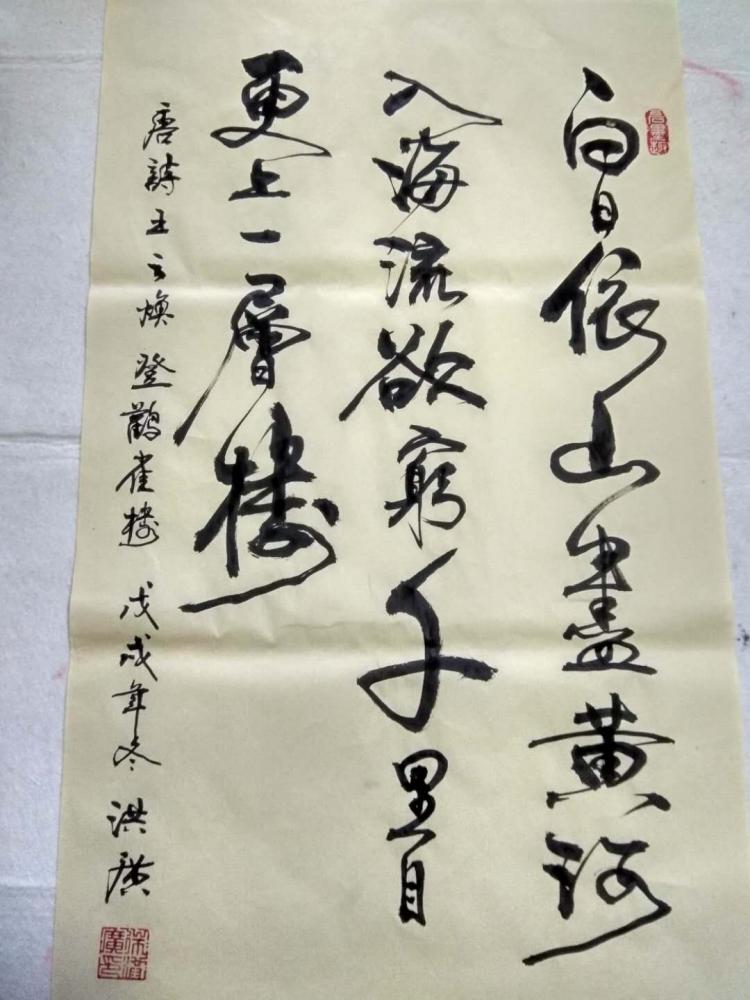 白日依山盡黄河
入海流欲窮千里目
更上一層樓
唐詩王之煥登鸛雀樓 戊戌年冬 洪廣